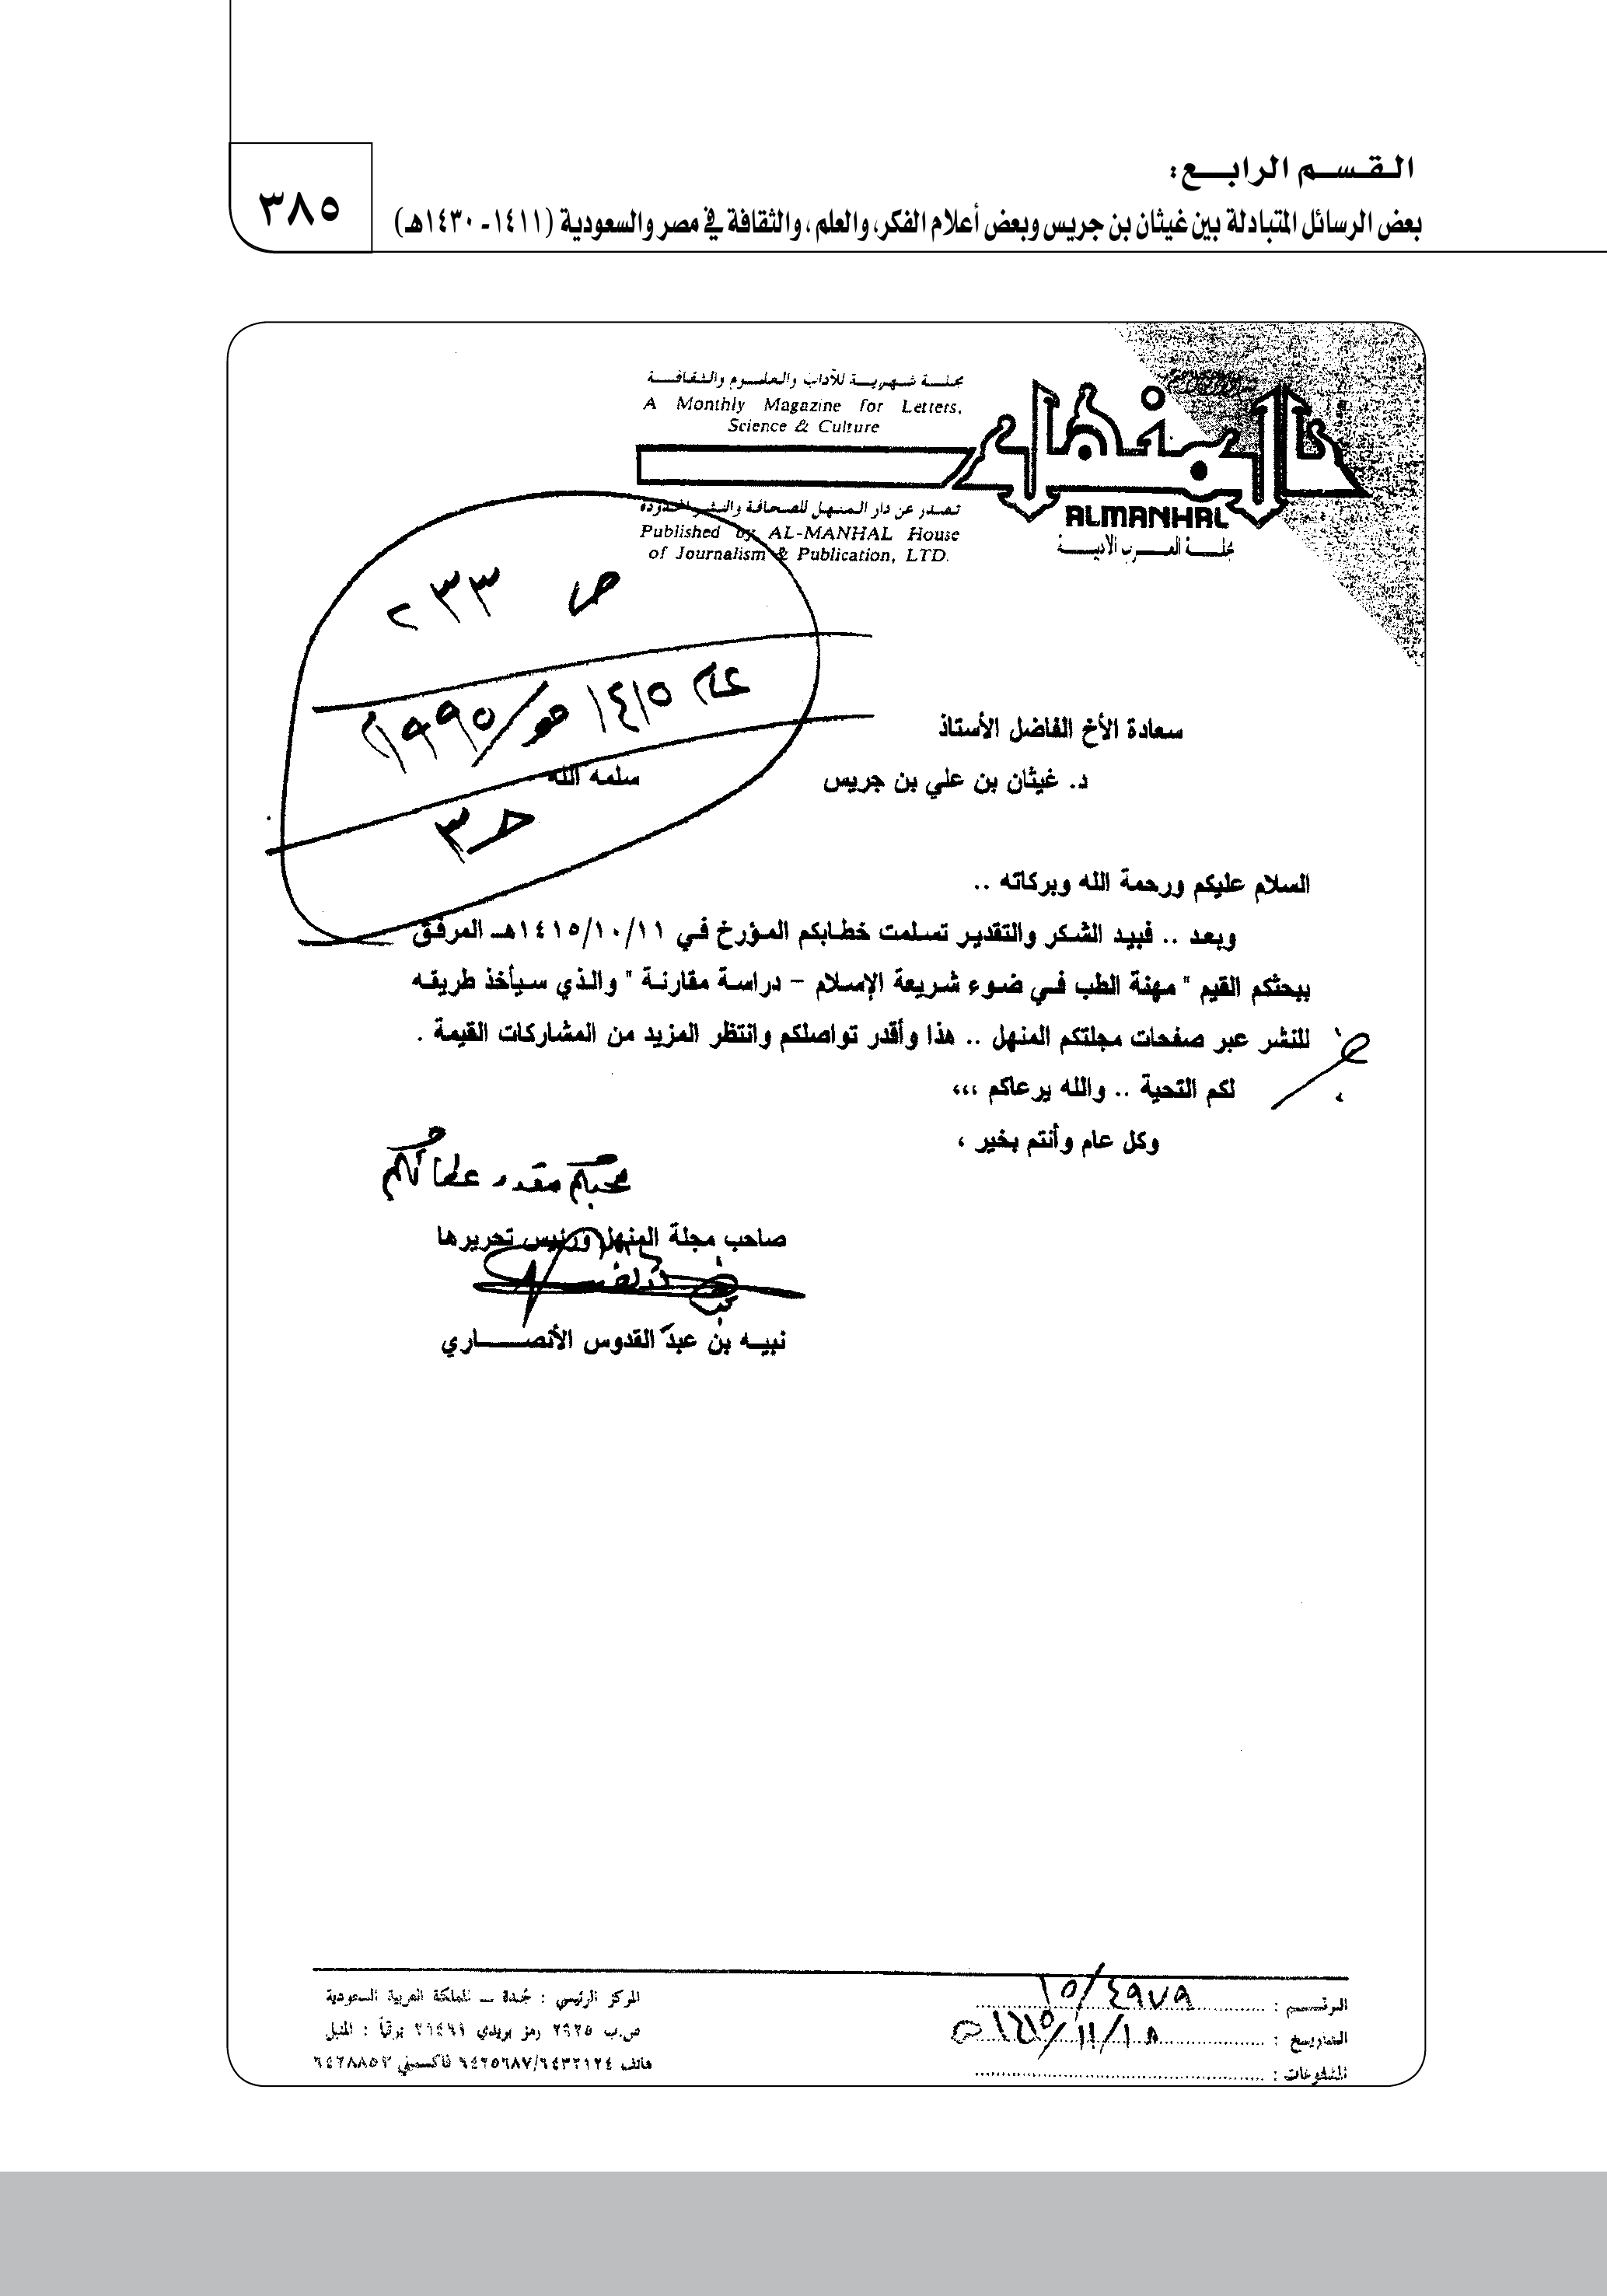 القسم الرابع:
بعض الرسائل المتبادلة بين غيثان بن جريس وبعض أعلام الفكر، والعلم، والثقافة في مصر والسعودية (١٤١١ـ ١٤٣٠هـ)
٣٨٥
مجلة شهرية للآداب والعلوم والثقافة
A Monthly Magazine for Letters,
Science & Culture
المنهل
ALMANHAL
مجلة العرب الأدبية
تصدر عن دار المنهل للصحافة والنشر المحدودة
Published by AL-MANHAL House
of Journalism & Publication, LTD.
ص ٢٣٣
عام ١٤١٥هـ/١٩٩٥م
حـ٣
سعادة الأخ الفاضل الأستاذ
د. غيثان بن علي بن جريس سلمه الله
السلام عليكم ورحمة الله وبركاته ..
وبعد .. فبيد الشكر والتقدير تسلمت خطابكم المؤرخ في ١٤١٥/١٠/١١هـ المرفق
ببحثكم القيم " مهنة الطب في ضوء شريعة الإسلام – دراسة مقارنة " والذي سيأخذ طريقه
للنشر عبر صفحات مجلتكم المنهل .. هذا وأقدر تواصلكم وانتظر المزيد من المشاركات القيمة .
لكم التحية .. والله يرعاكم ،،،
وكل عام وأنتم بخير ،
محبكم مقدر عطائكم
صاحب مجلة المنهل ورئيس تحريرها
نبيه بن عبد القدوس الأنصاري
الرقم : ١٥/٤٩٧٩
التاريخ : ١٤١٥/١١/١٨هـ
المشفوعات :
المركز الرئيسي : جدة – المملكة العربية السعودية
ص.ب ٢٩٢٥ رمز بريدي ٢١٤٦١ برقياً : المنهل
هاتف ٦٤٢٥٦٨٧/٦٤٣٢١٢٤ فاكسميلي ٦٤٢٨٨٥٣